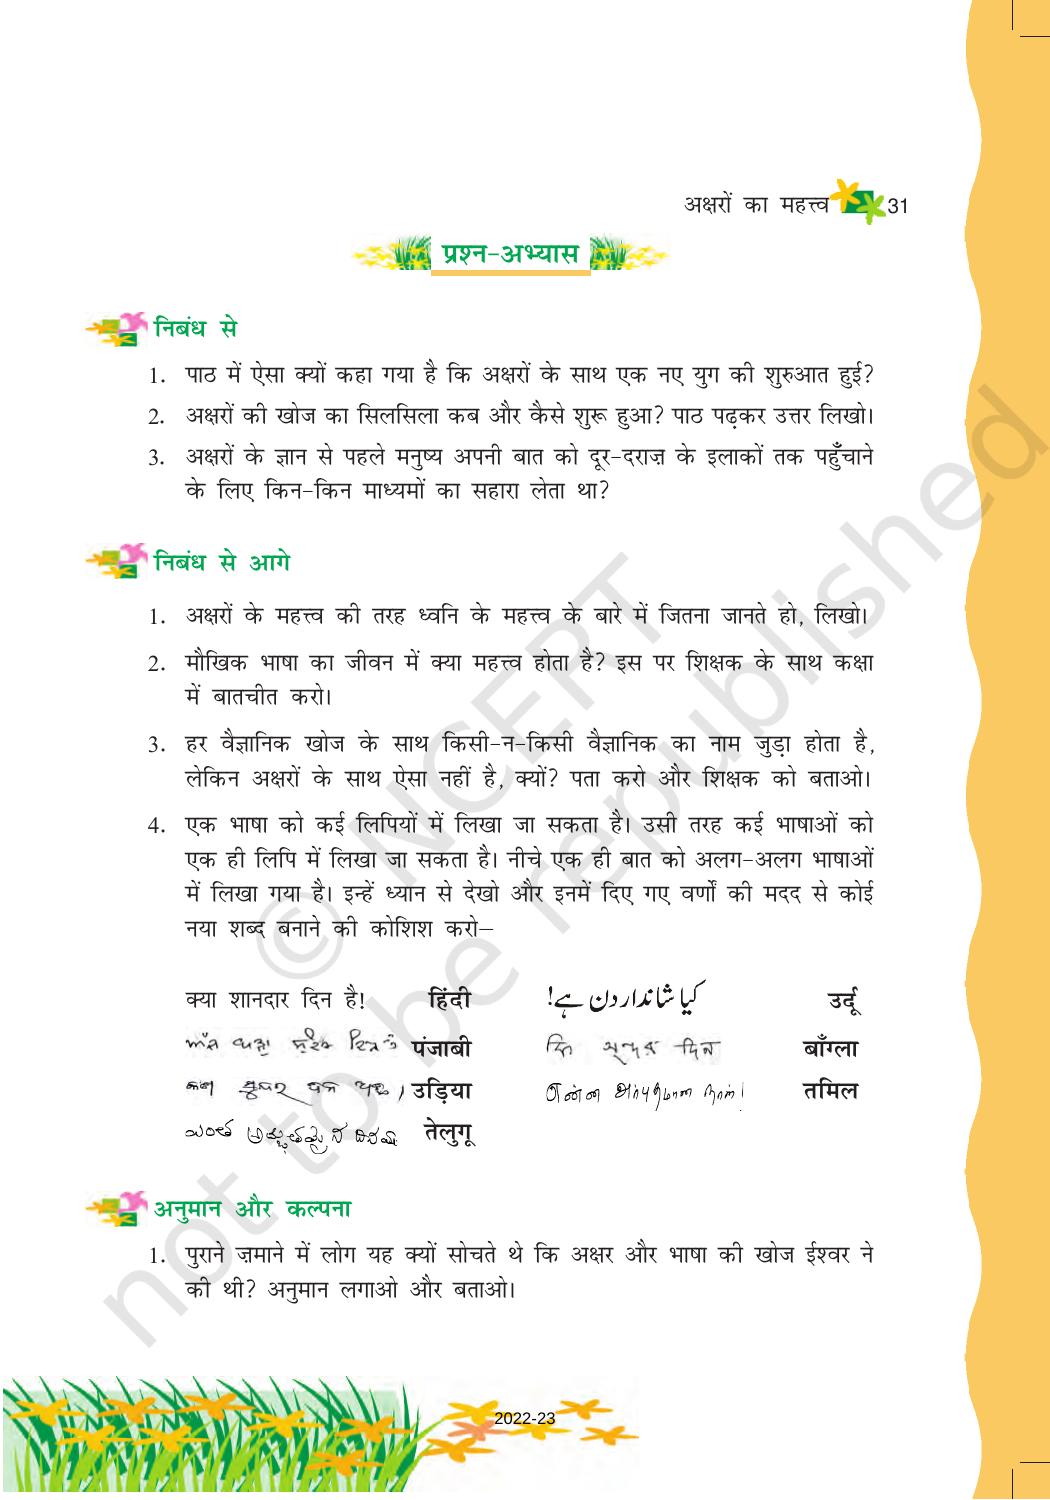 अक्षरों का महत्त्व 31
प्रश्न-अभ्यास
निबंध से
1. पाठ में ऐसा क्यों कहा गया है कि अक्षरों के साथ एक नए युग की शुरुआत हुई?
2. अक्षरों की खोज का सिलसिला कब और कैसे शुरू हुआ? पाठ पढ़कर उत्तर लिखो।
3. अक्षरों के ज्ञान से पहले मनुष्य अपनी बात को दूर-दराज़ के इलाकों तक पहुँचाने
के लिए किन-किन माध्यमों का सहारा लेता था?
निबंध से आगे
1. अक्षरों के महत्त्व की तरह ध्वनि के महत्त्व के बारे में जितना जानते हो, लिखो।
2. मौखिक भाषा का जीवन में क्या महत्त्व होता है? इस पर शिक्षक के साथ कक्षा
में बातचीत करो।
3. हर वैज्ञानिक खोज के साथ किसी-न-किसी वैज्ञानिक का नाम जुड़ा होता है,
लेकिन अक्षरों के साथ ऐसा नहीं है, क्यों? पता करो और शिक्षक को बताओ।
4. एक भाषा को कई लिपियों में लिखा जा सकता है। उसी तरह कई भाषाओं को
एक ही लिपि में लिखा जा सकता है। नीचे एक ही बात को अलग-अलग भाषाओं
में लिखा गया है। इन्हें ध्यान से देखो और इनमें दिए गए वर्णों की मदद से कोई
नया शब्द बनाने की कोशिश करो–
क्या शानदार दिन है! हिंदी کیا شاندار دن ہے! उर्दू
पंजाबी কি সুন্দর দিন बाँग्ला
उड़िया என்ன அற்புதமான நாள்! तमिल
ఎంత అద్భుతమైన దినము तेलुगू
अनुमान और कल्पना
1. पुराने ज़माने में लोग यह क्यों सोचते थे कि अक्षर और भाषा की खोज ईश्वर ने
की थी? अनुमान लगाओ और बताओ।
2022-23
© NCERT
not to be republished